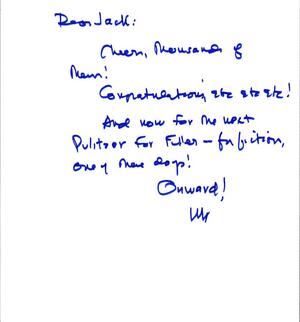 Dear Jack:
Cheers, thousands of
them!
Congratulations, etc etc etc!
And now for the next
Pulitzer for Fuller – for fiction,
one of these days!
Onward!